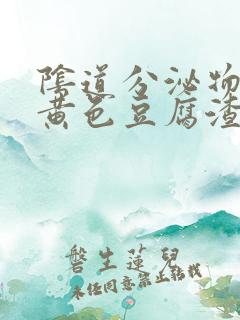 陰道分泌物
黄色豆腐渣
磬生蓮兒
未经同意禁止转载